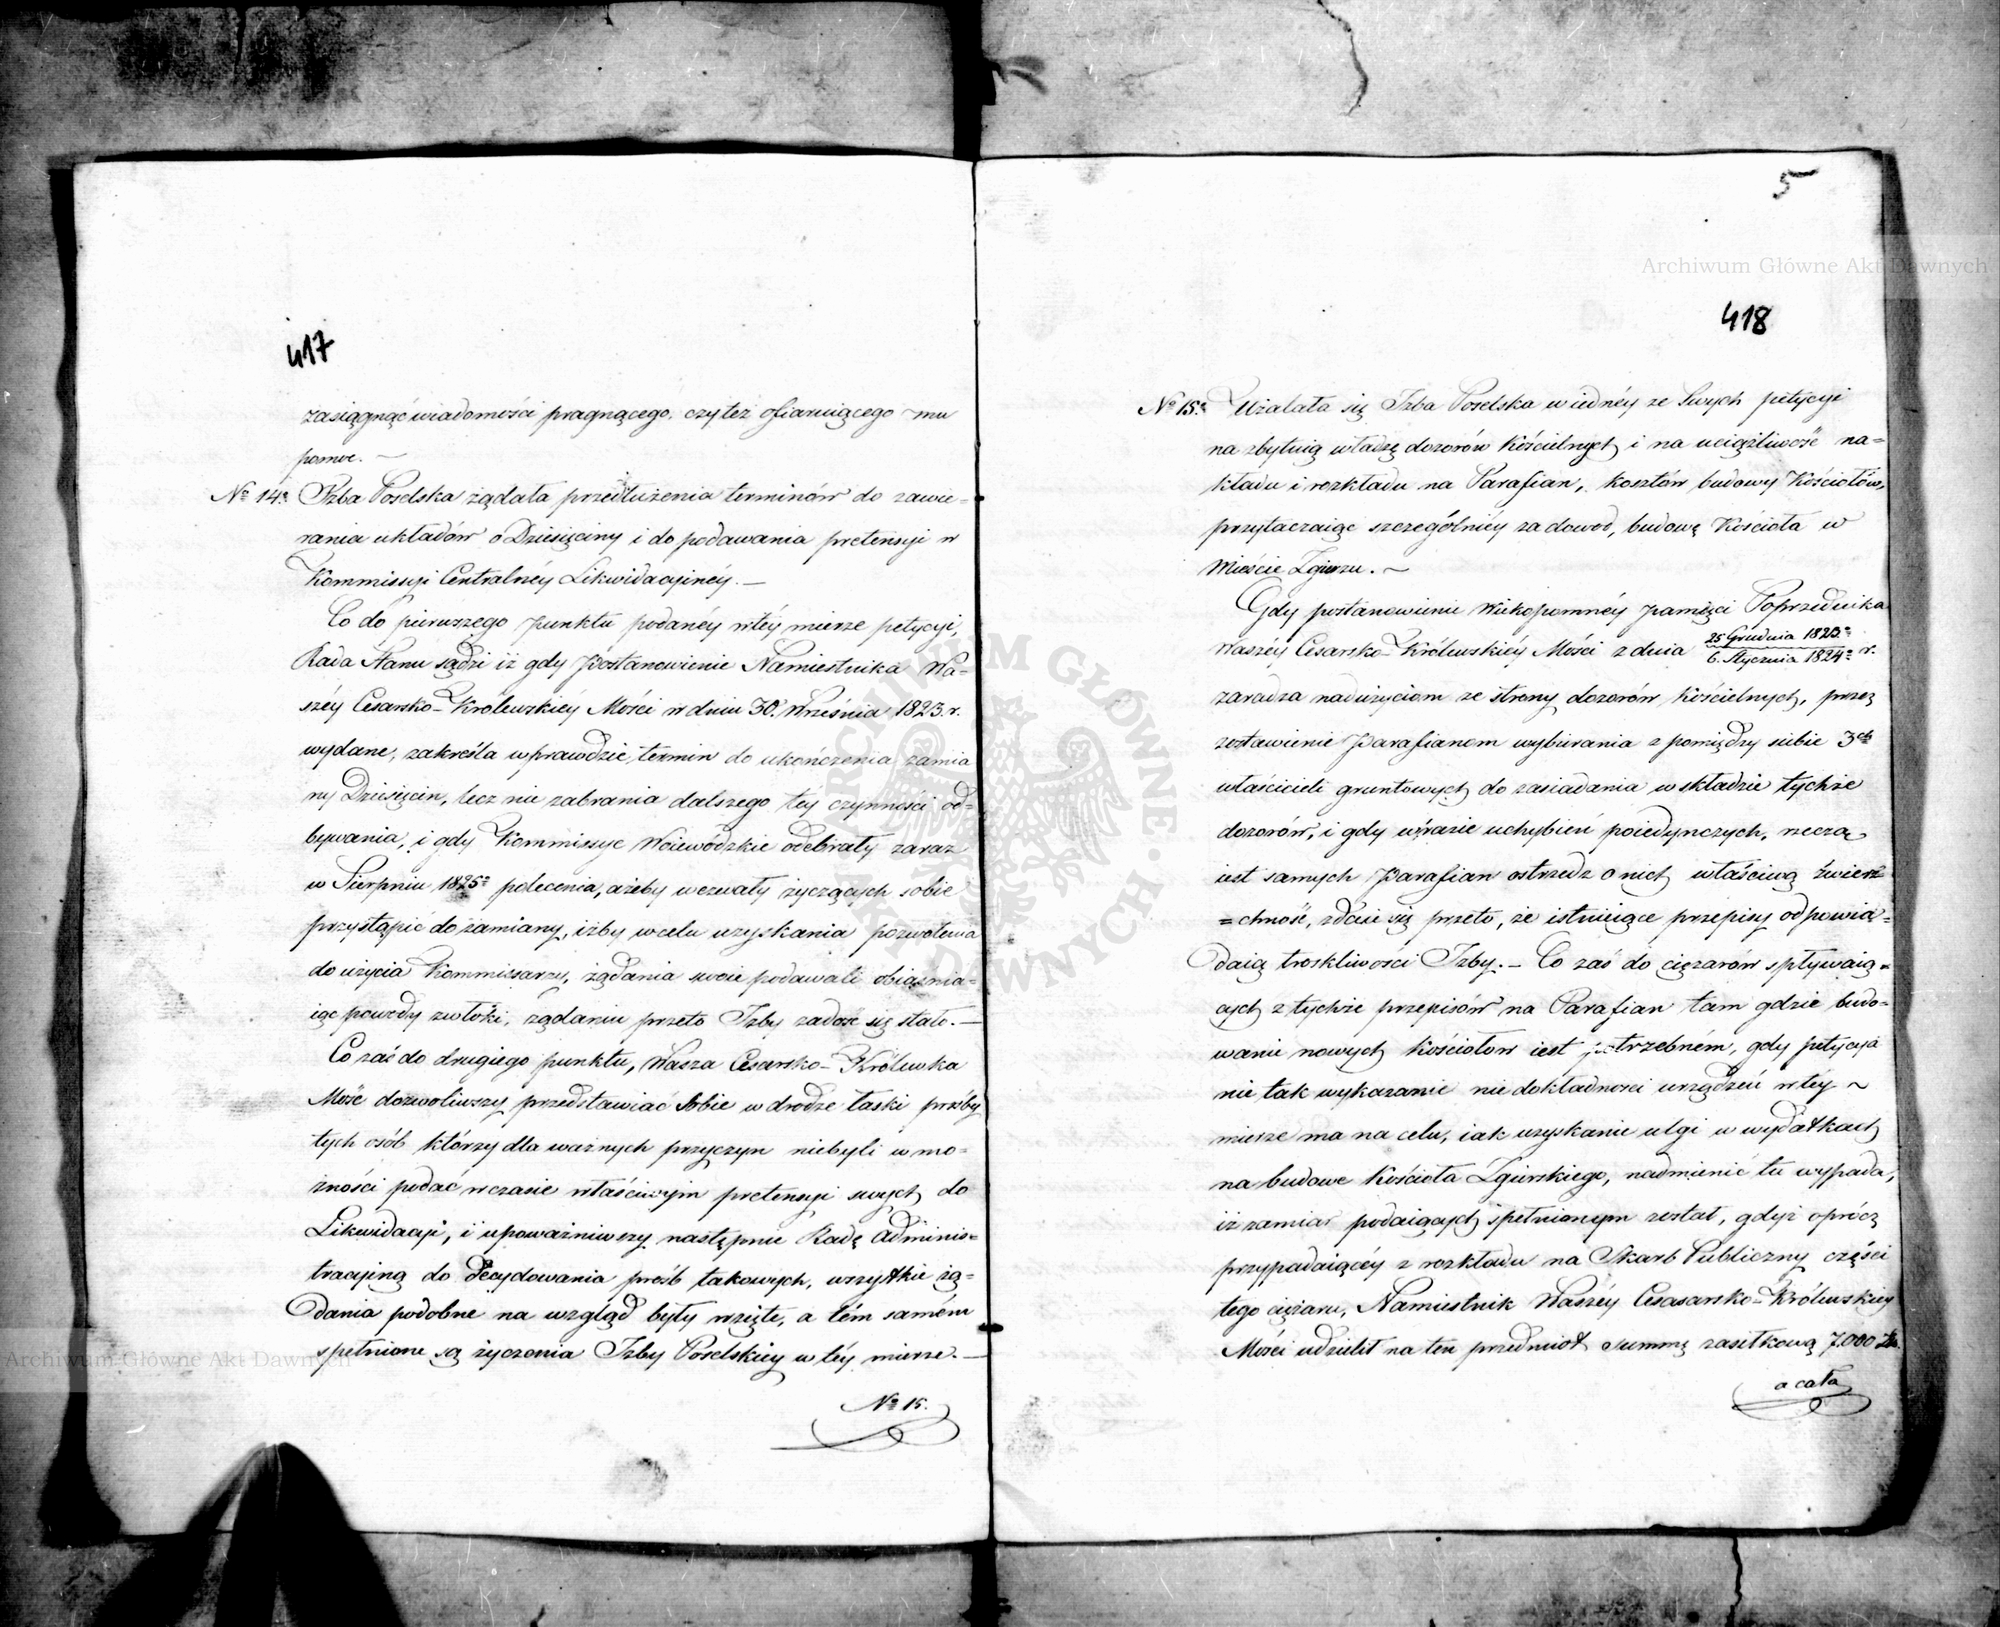 417
zasiągnąć wiadomości pragnącego, czy też ofiaruiącego mu
pomoc. —
№ 14. Izba Poselska żądała przedłużenia terminów do zawie-
rania układów o Dziesięciny i do podawania pretensyi w
Kommissyi Centralnéy Likwidacyinéy. —
Co do pierwszego punktu podanéy w téy mierze petycyi,
Rada Stanu sądzi iż gdy Postanowienie Namiestnika Wa-
széy Cesarsko-Królewskiéy Mości w dniu 30. Września 1823. r.
wydane, zakreśla wprawdzie, termin do ukończenia zamia
ny Dziesięcin, lecz nie zabrania dalszego tey czynności od-
bywania, i gdy Kommissye Woiewódzkie odebrały zaraz
w Sierpniu 1825 polecenia, ażeby wezwały życzących sobie
przystąpić do zamiany, iżby w celu uzyskania pozwolenia
do użycia Kommissarzy, żądania swoie podawali obiaśnia-
iąc powody zwłoki, żądaniu przeto Izby zadość się stało. —
Co zaś do drugiego punktu, Wasza Cesarsko-Królewska
Mość dozwoliwszy przedstawiać Sobie w drodze łaski prośby
tych osób którzy dla ważnych przyczyn niebyli w mo-
żności podać w czasie właściwym pretensyi swych do
Likwidacyi, i upoważniwszy następnie Radę Adminis=
tracyiną do decydowania prośb takowych, wszystkie żą=
dania podobne na wzgląd były wzięte, a tém samém
spełnione są życzenia Izby Poselskiey w téy mierze. —
№ 15.
5
418
№ 15. Użalała się Izba Poselska w iednéy ze Swych petycyi
na zbytnią władzę dozorów Kościelnych i na uciążliwość na=
kładu i rozkładu na Parafian, kosztów budowy Kościołów,
przytaczaiąc szczególniéy za dowód, budowę Kościoła w
Mieście Zgierzu. —
Gdy postanowienie Wiekopomnéy pamięci Poprzednika
Waszéy Cesarsko-Królewskiéy Mości z dnia 25 Grudnia 1823. / 6. Stycznia 1824. r.
zaradza nadużyciom ze strony dozorów Kościelnych, przez
zostawienie Parafianom wybierania z pomiędzy siebie 3ch
właścicieli gruntowych do zasiadania w składzie tychże
dozorów, i gdy w razie uchybień poiedynczych, rzeczą
iest samych Parafian ostrzedz o nich właściwą zwierz
=chność, zdaie się przeto, że istnieiące przepisy odpowia=
daią troskliwości Izby. — Co zaś do ciężarów spływaią=
cych z tychże przepisów na Parafian tam gdzie budo=
wanie nowych Kościołów iest potrzebném, gdy petycya
nie tak wykazanie niedokładności urządzeń w téy ~
mierze ma na celu, iak uzyskanie ulgi w wydatkach
na budowe Kościoła Zgierskiego, nadmienić tu wypada,
iż zamiar podaiących spełnionym został, gdyż oprócz
przypadaiącéy z rozkładu na Skarb Publiczny części
tego ciężaru, Namiestnik Waszéy Cesasarsko-Królewskiey
Mości udzielił na ten przedmiot summę zasiłkową 7,000 Zł.
a cała
Archiwum Główne Akt Dawnych
Archiwum Główne Akt Dawnych
ARCHIWUM GŁÓWNE AKT DAWNYCH